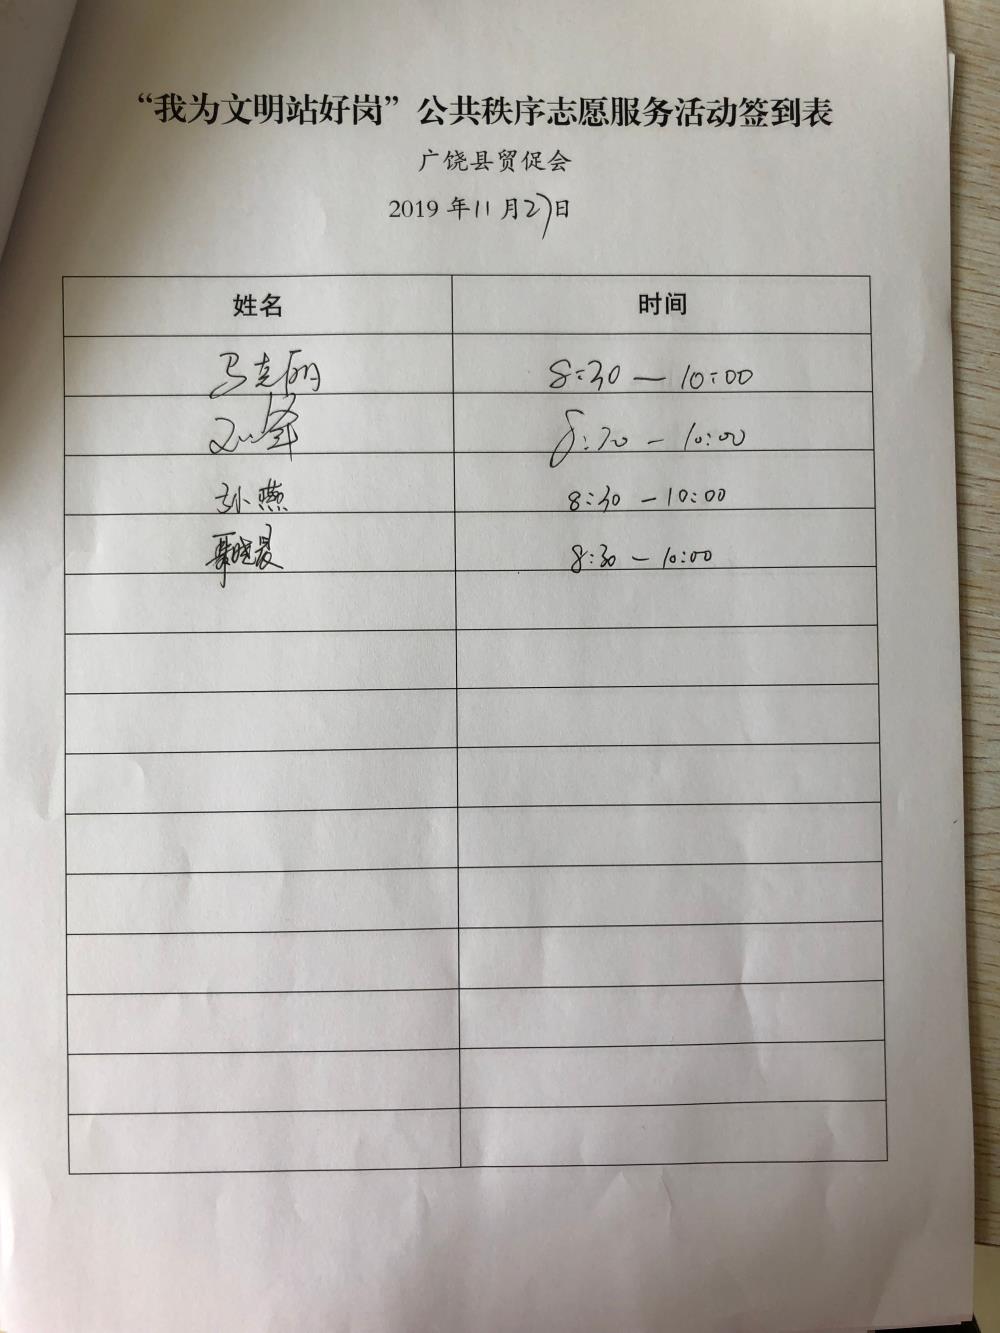 “我为文明站好岗”公共秩序志愿服务活动签到表
广饶县贸促会
2019 年 11 月 27 日
姓名 时间
马克明 8:30 — 10:00
8:30 — 10:00
孙燕 8:30 — 10:00
聂晓晨 8:30 — 10:00